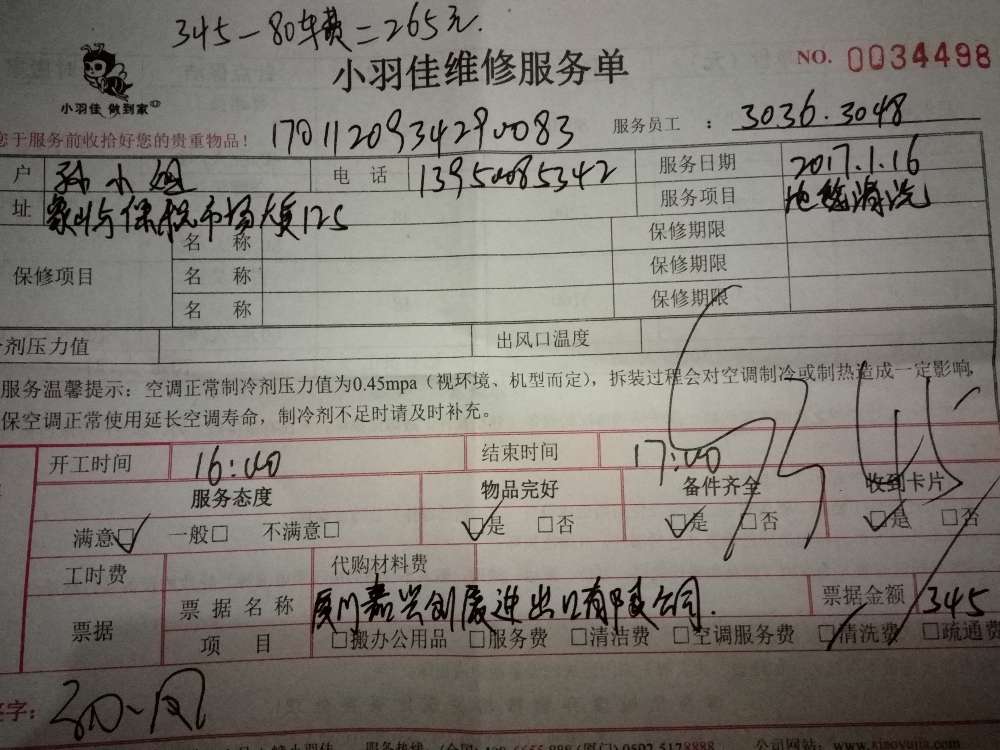 345-80车费=265元.
小羽佳维修服务单 NO. 0034498
小羽佳 做到家
您于服务前收拾好您的贵重物品! 17011209342920083 服务员工 : 3036.3048
户 孙小姐 电 话 13950085342 服务日期 2017.1.16
址 象屿保税市场大厦125 服务项目 地毯清洗
保修项目 名 称 保修期限
名 称 保修期限
名 称 保修期限
剂压力值 出风口温度
服务温馨提示：空调正常制冷剂压力值为0.45mpa（视环境、机型而定），拆装过程会对空调制冷或制热造成一定影响，
保空调正常使用延长空调寿命，制冷剂不足时请及时补充。
开工时间 16:00 结束时间 17:00
服务态度 物品完好 备件齐全 收到卡片
满意□ 一般□ 不满意□ □是 □否 □是 □否 □是 □否
工时费 代购材料费
票据 票据名称 厦门嘉兴创展进出口有限公司. 票据金额 345
项 目 □搬办公用品 □服务费 □清洁费 □空调服务费 □清洗费 □疏通费
签字：